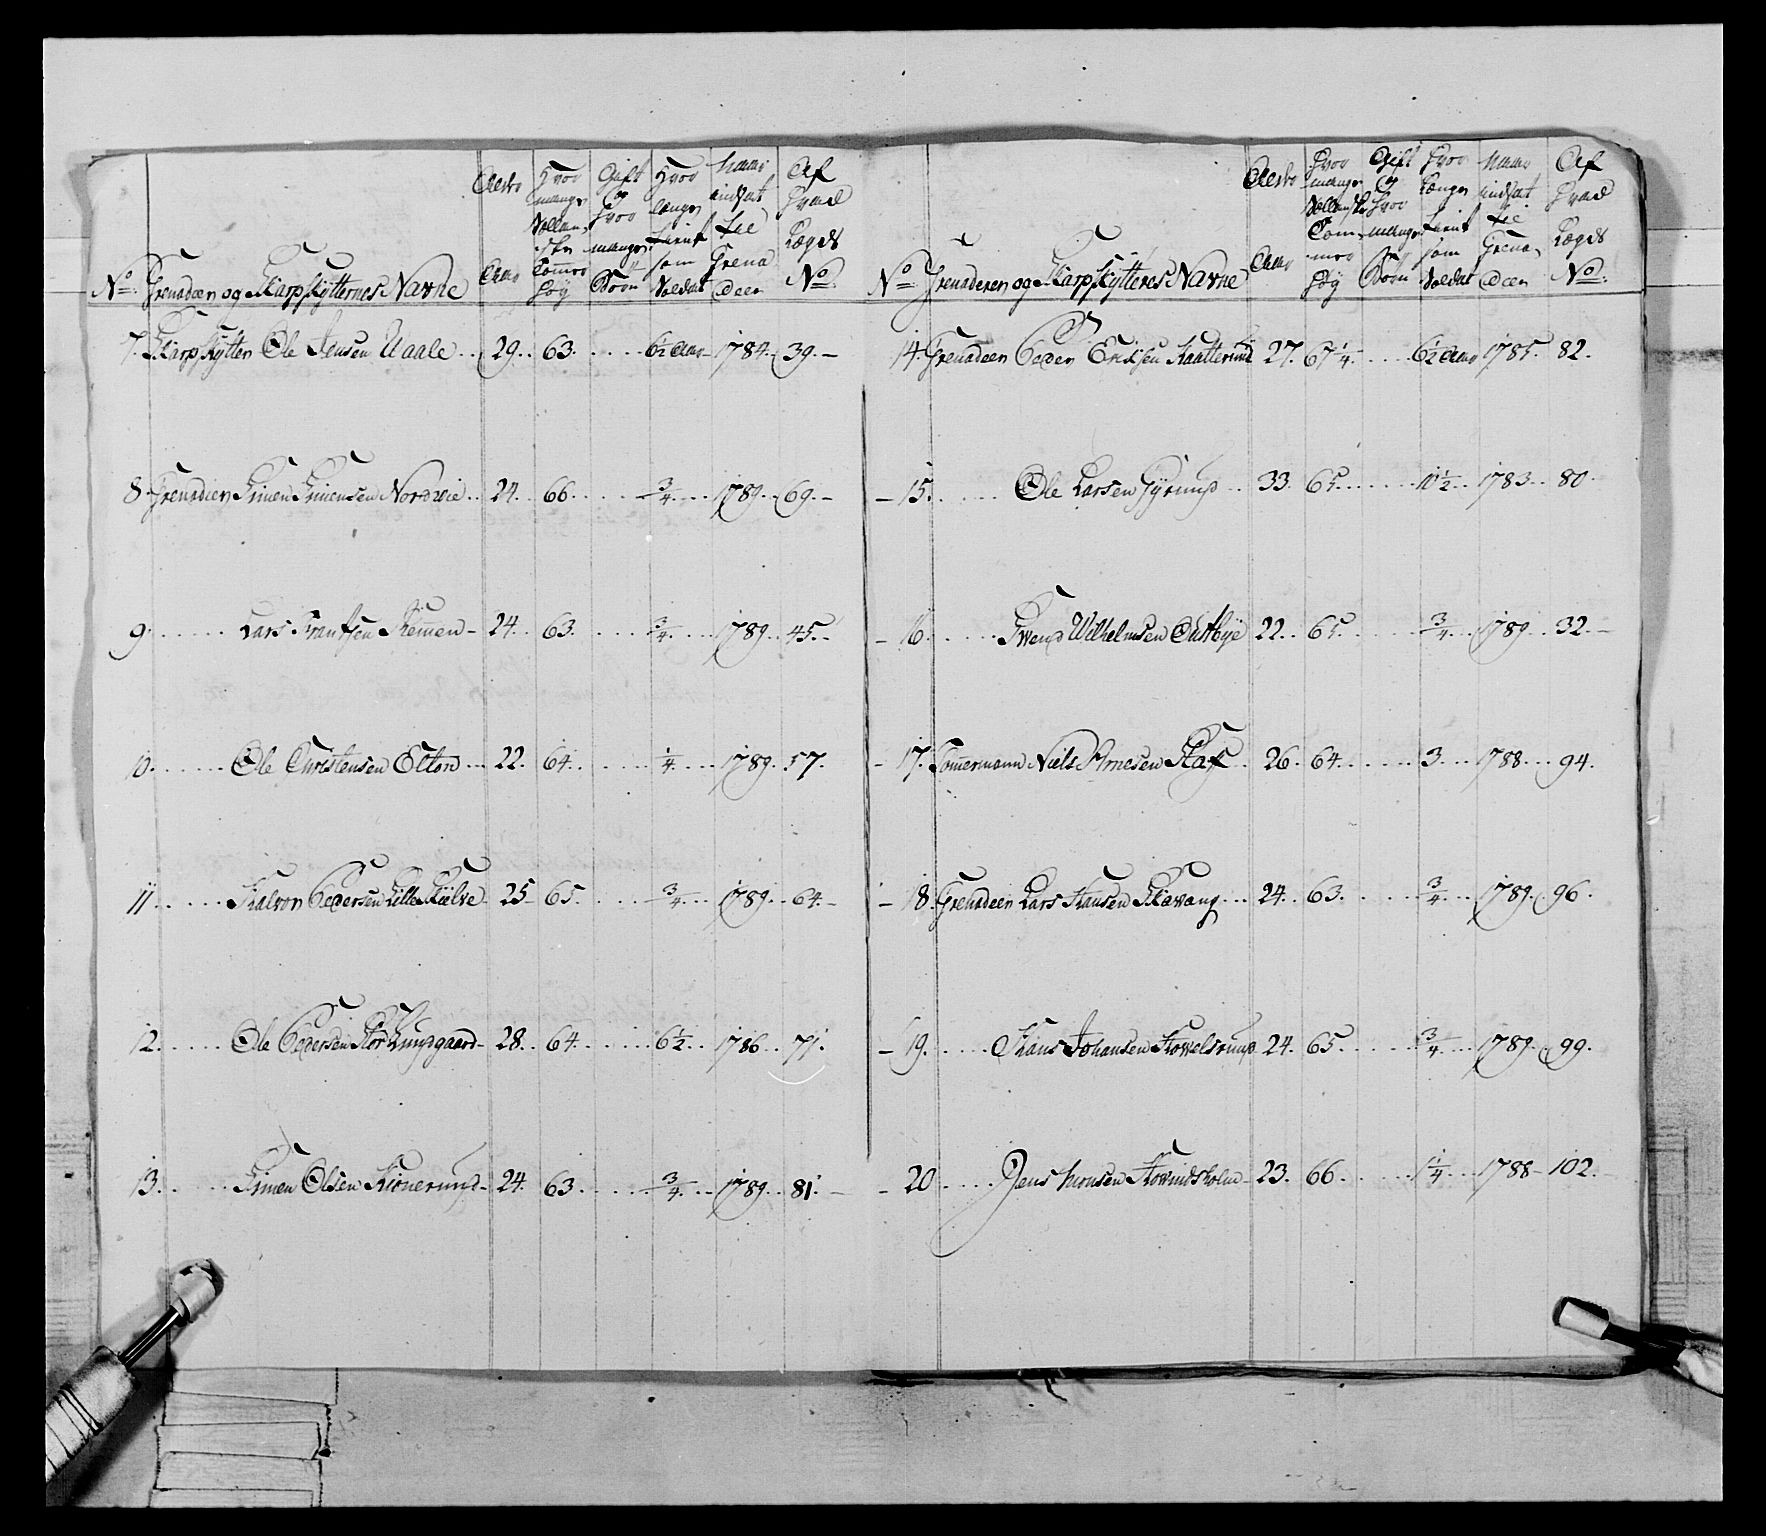 No. Grenadeer og Skarpskytternes Navne Alder Aar Hvor mange Sællandske Tommer Høÿ Gift og Hvor mange Børn Hvor længe tient som Soldat Naar indsat til Grenadeer Af Hvad Lægds No.
7. Skarpskytter Ole Jensen Aaale .. 29. 63. .... 6½ Aar 1784. 39. –
8 Grenadeer Simen Simensen Nordvie .. 24. 66. .... ¾ .... 1789. 69. –
9. ..... Lars Frantsen – 24. 63. .... ¾ .... 1789. 45. –
10. ..... Ole Christensen Elton ... 22. 64. .... ¼ .... 1789. 57.
11. ..... Halvor Pedersen Lille 25 65. .... ¾ .... 1789. 64. –
12. ..... Ole Pedersen Stor Lundgaard – 28. 64. .... 6½ .. 1786 .. 71.
13. ..... Simen Olsen – 24. 63. .... ¾ .... 1789. 81. –
No. Grenaderer og Skarpskytteres Navne Alder Aar Hvor mange Sællandske Tommer Høÿ Gift og Hvor mange Børn Hvor Længe tient som Soldat Naar indsat til Grenadeer Af Hvad Lægds No.
14. Grenadeer Peder Erichsen 27. 67¼. .... 6½ Aar 1785. 82.
– 15. ..... Ole Larsen .. 33. 65. .... 10½ .. 1783 .. 80.
– 16. ..... Svend Wilhelmsen 22. 65. .... ¾ .... 1789. 32. –
– 17. Tømmermand Niels Arnesen 26. 64. .... 3. ... 1788. ... 94.
– 18. Grenadeer Lars Hansen Skavang ... 24. 63. .... ¾ .... 1789. 96.
– 19. ..... Hans Johansen 24. 65. .... ¾ .... 1789. 99.
– 20 ..... Jens 23. 66. .... 1¼ .... 1788 – 102.